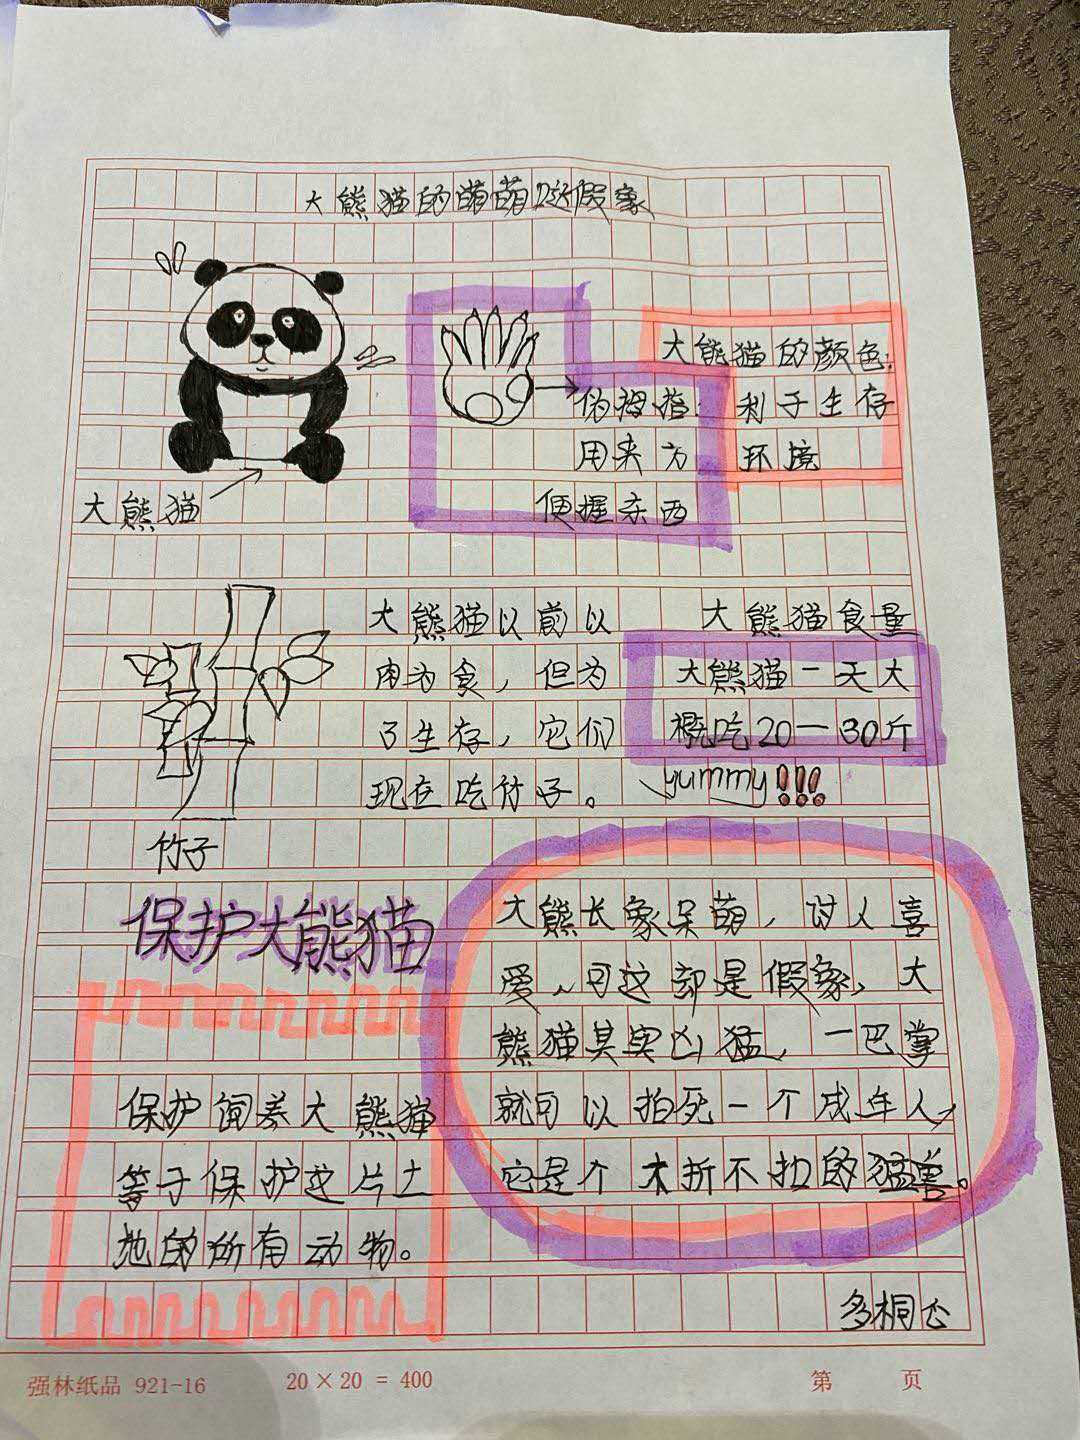 大熊猫的萌萌哒假象
大熊猫的颜色:
利于生存
环境
伪拇指:
用来方
便握东西
大熊猫
大熊猫以前以
肉为食，但为
了生存，它们
现在吃竹子。
大熊猫食量
大熊猫一天大
概吃20—30斤
yummy!!!
竹子
保护大熊猫
保护饲养大熊猫
等于保护这片土
地的所有动物。
大熊长象呆萌，讨人喜
爱、可这却是假象，大
熊猫其实凶猛，一巴掌
就可以拍死一个成年人，
它是个木折不扣的猛兽。
多桐
强林纸品 921-16
20×20 = 400
第 页